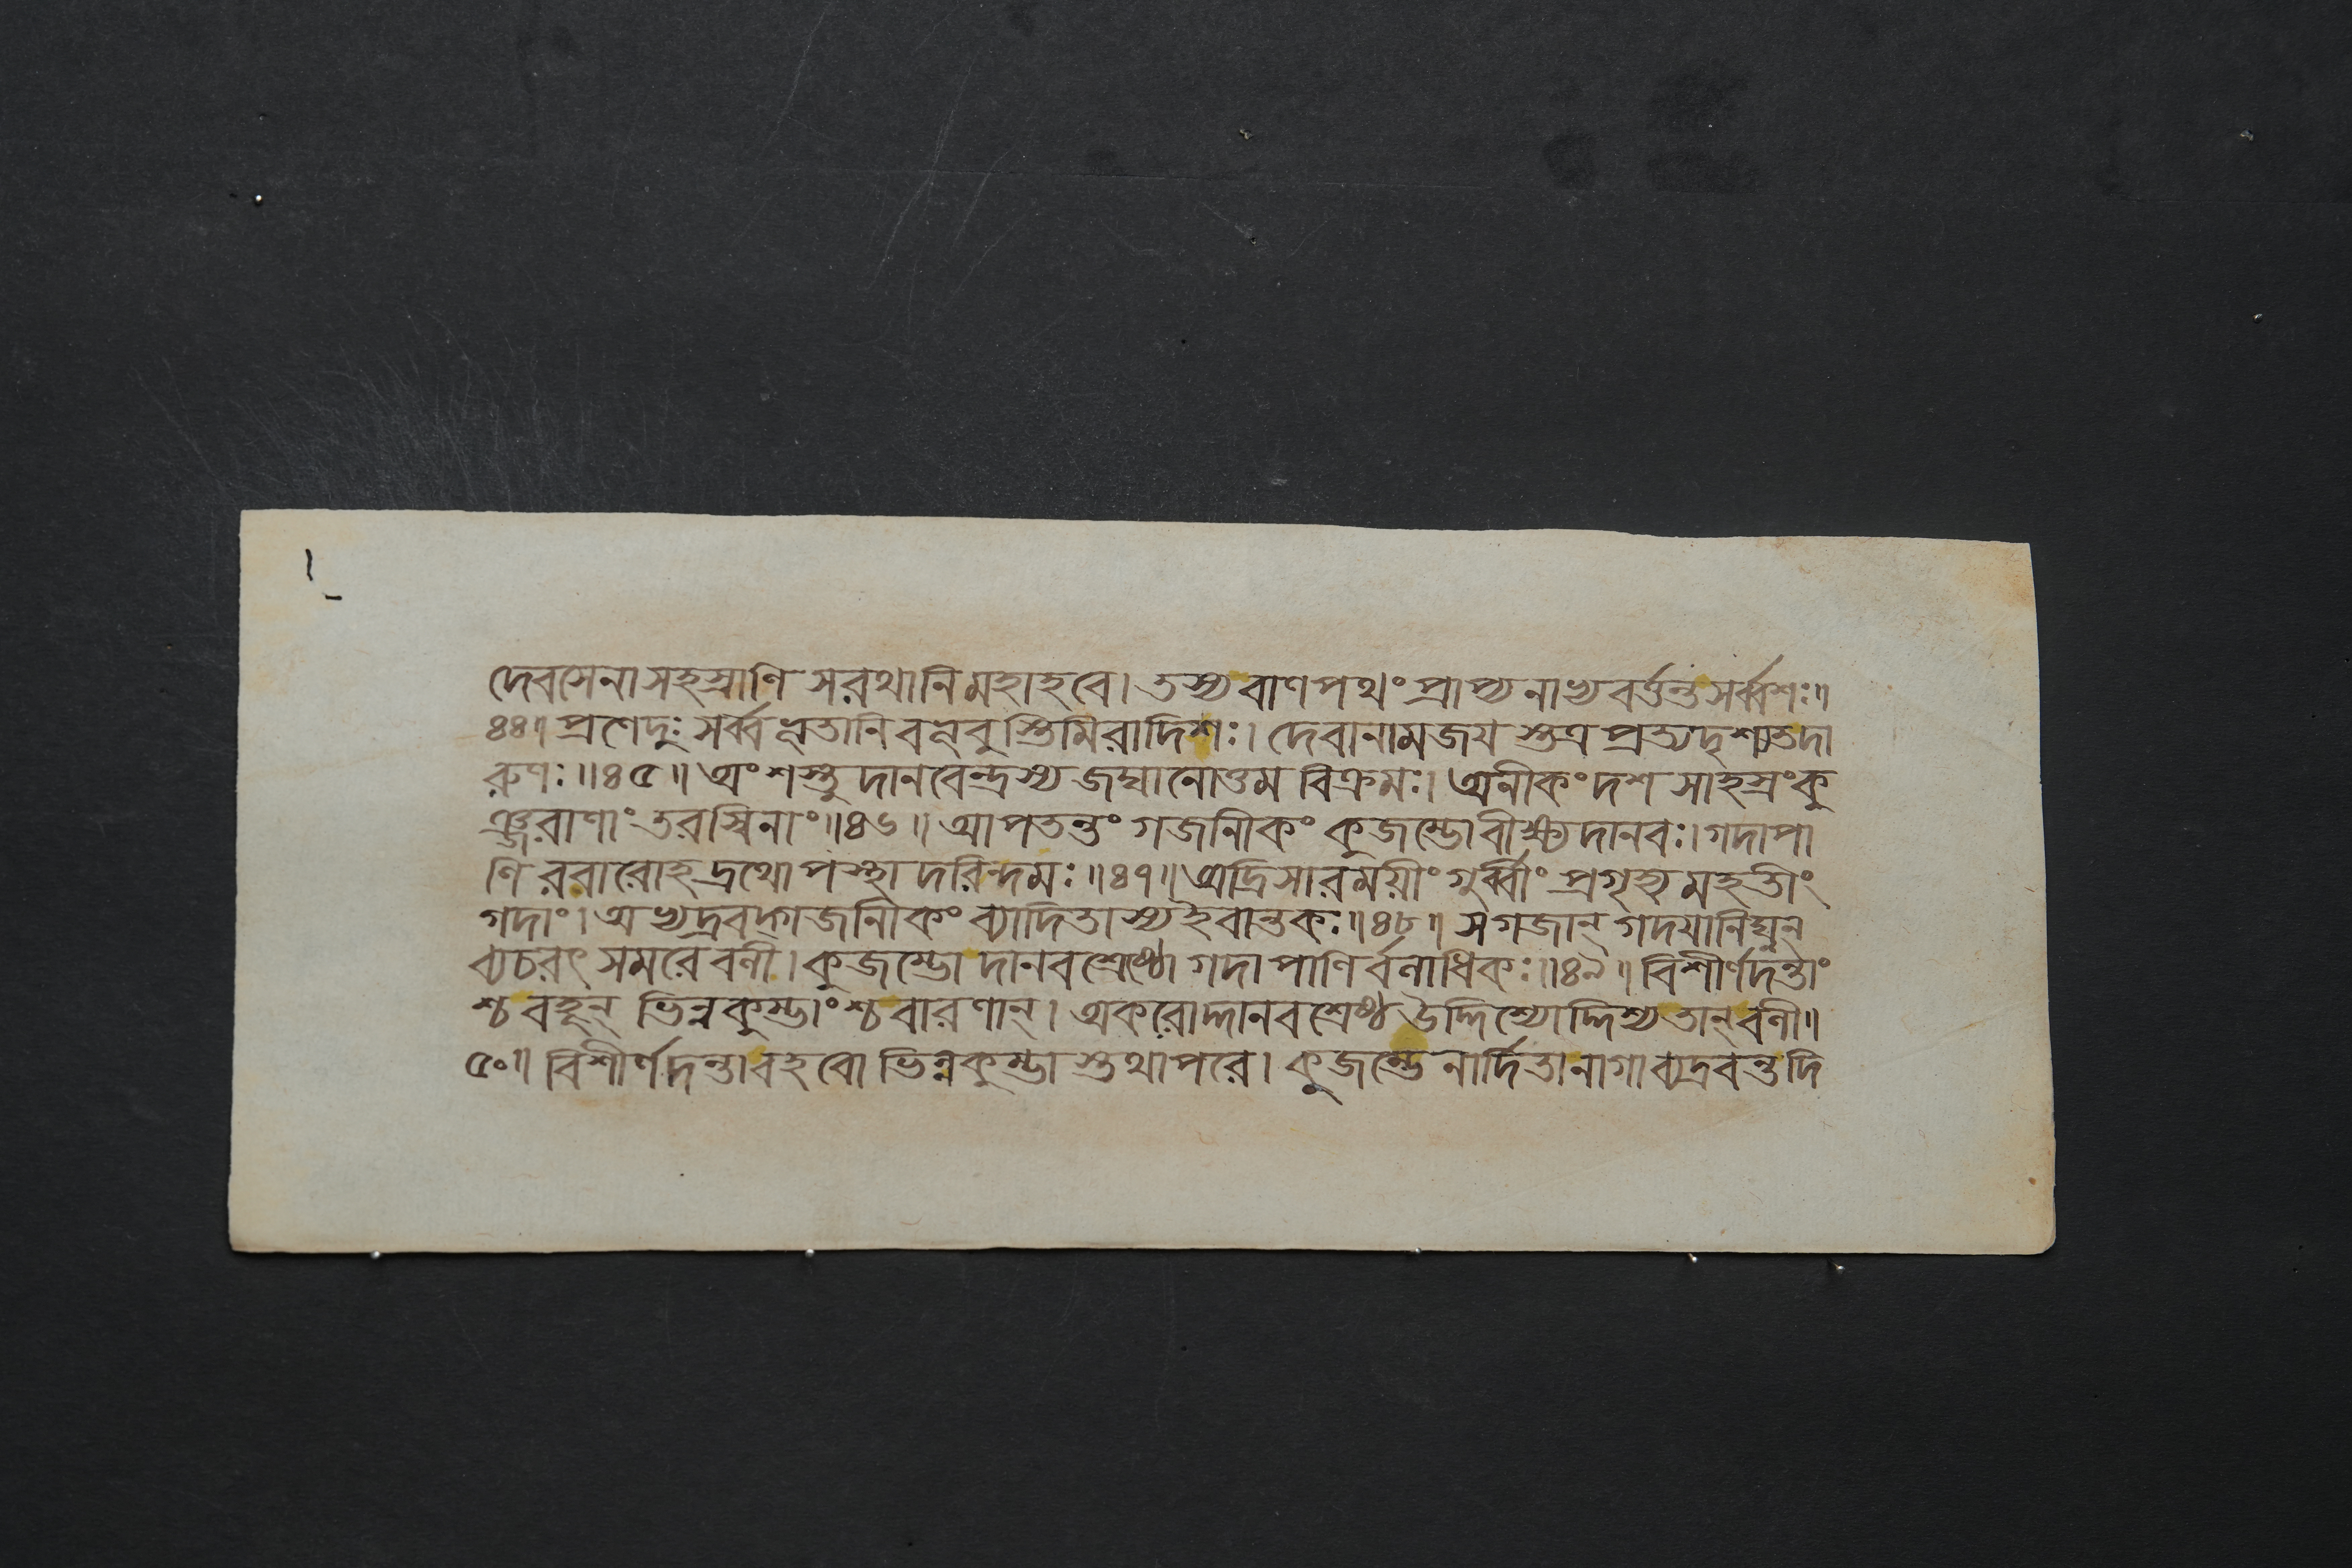 দেবসেনাসহস্রাণি সরথানিমহাহবে। তস্যবাণপথং প্রাপ্যনাভ্যবর্ত্তন্তসর্ব্বশঃ॥
৪৪॥ প্রণেদুঃ সর্ব্বভূতানি বভূবুস্তিমিরাদিশঃ। দেবানামজয স্তত্র প্রত্যদৃশ্যতদা
রুণঃ॥৪৫॥ অংশস্তু দানবেন্দ্রস্য জঘানোত্তম বিক্রমঃ। অনীকংদশ সাহস্রংকু
ঞ্জরাণাং তরস্বিনাং॥৪৬॥ আপতন্তং গজানীকং কুজম্ভোবীক্ষ্যদানবঃ। গদাপা
ণি ররারোহদ্রথোপস্থা দরিন্দমঃ॥৪৭॥ অদ্রিসারময়ীং গুর্ব্বীং প্রগৃহ্য মহতীং
গদাং। অভ্যদ্রবদ্গজানীকং ব্যাদিতাস্যইবান্তকঃ॥৪৮॥ সগজান্ গদযানিঘ্নন্
ব্যচরৎ সমরেবলী। কুজম্ভো দানবশ্রেষ্ঠো গদাপাণির্বলাধিকঃ॥৪৯॥ বিশীর্ণদন্তাং
শ্চ বহূন্ ভিন্নকুম্ভাংশ্চবারণান্। অকরোদ্দানবশ্রেষ্ঠ উদ্দিশ্যোদ্দিশ্যতান্বলী॥
৫০॥ বিশীর্ণদন্তাবহবো ভিন্নকুম্ভা স্তথাপরে। কুজম্ভেনার্দিতানাগাব্যদ্রবন্তদি